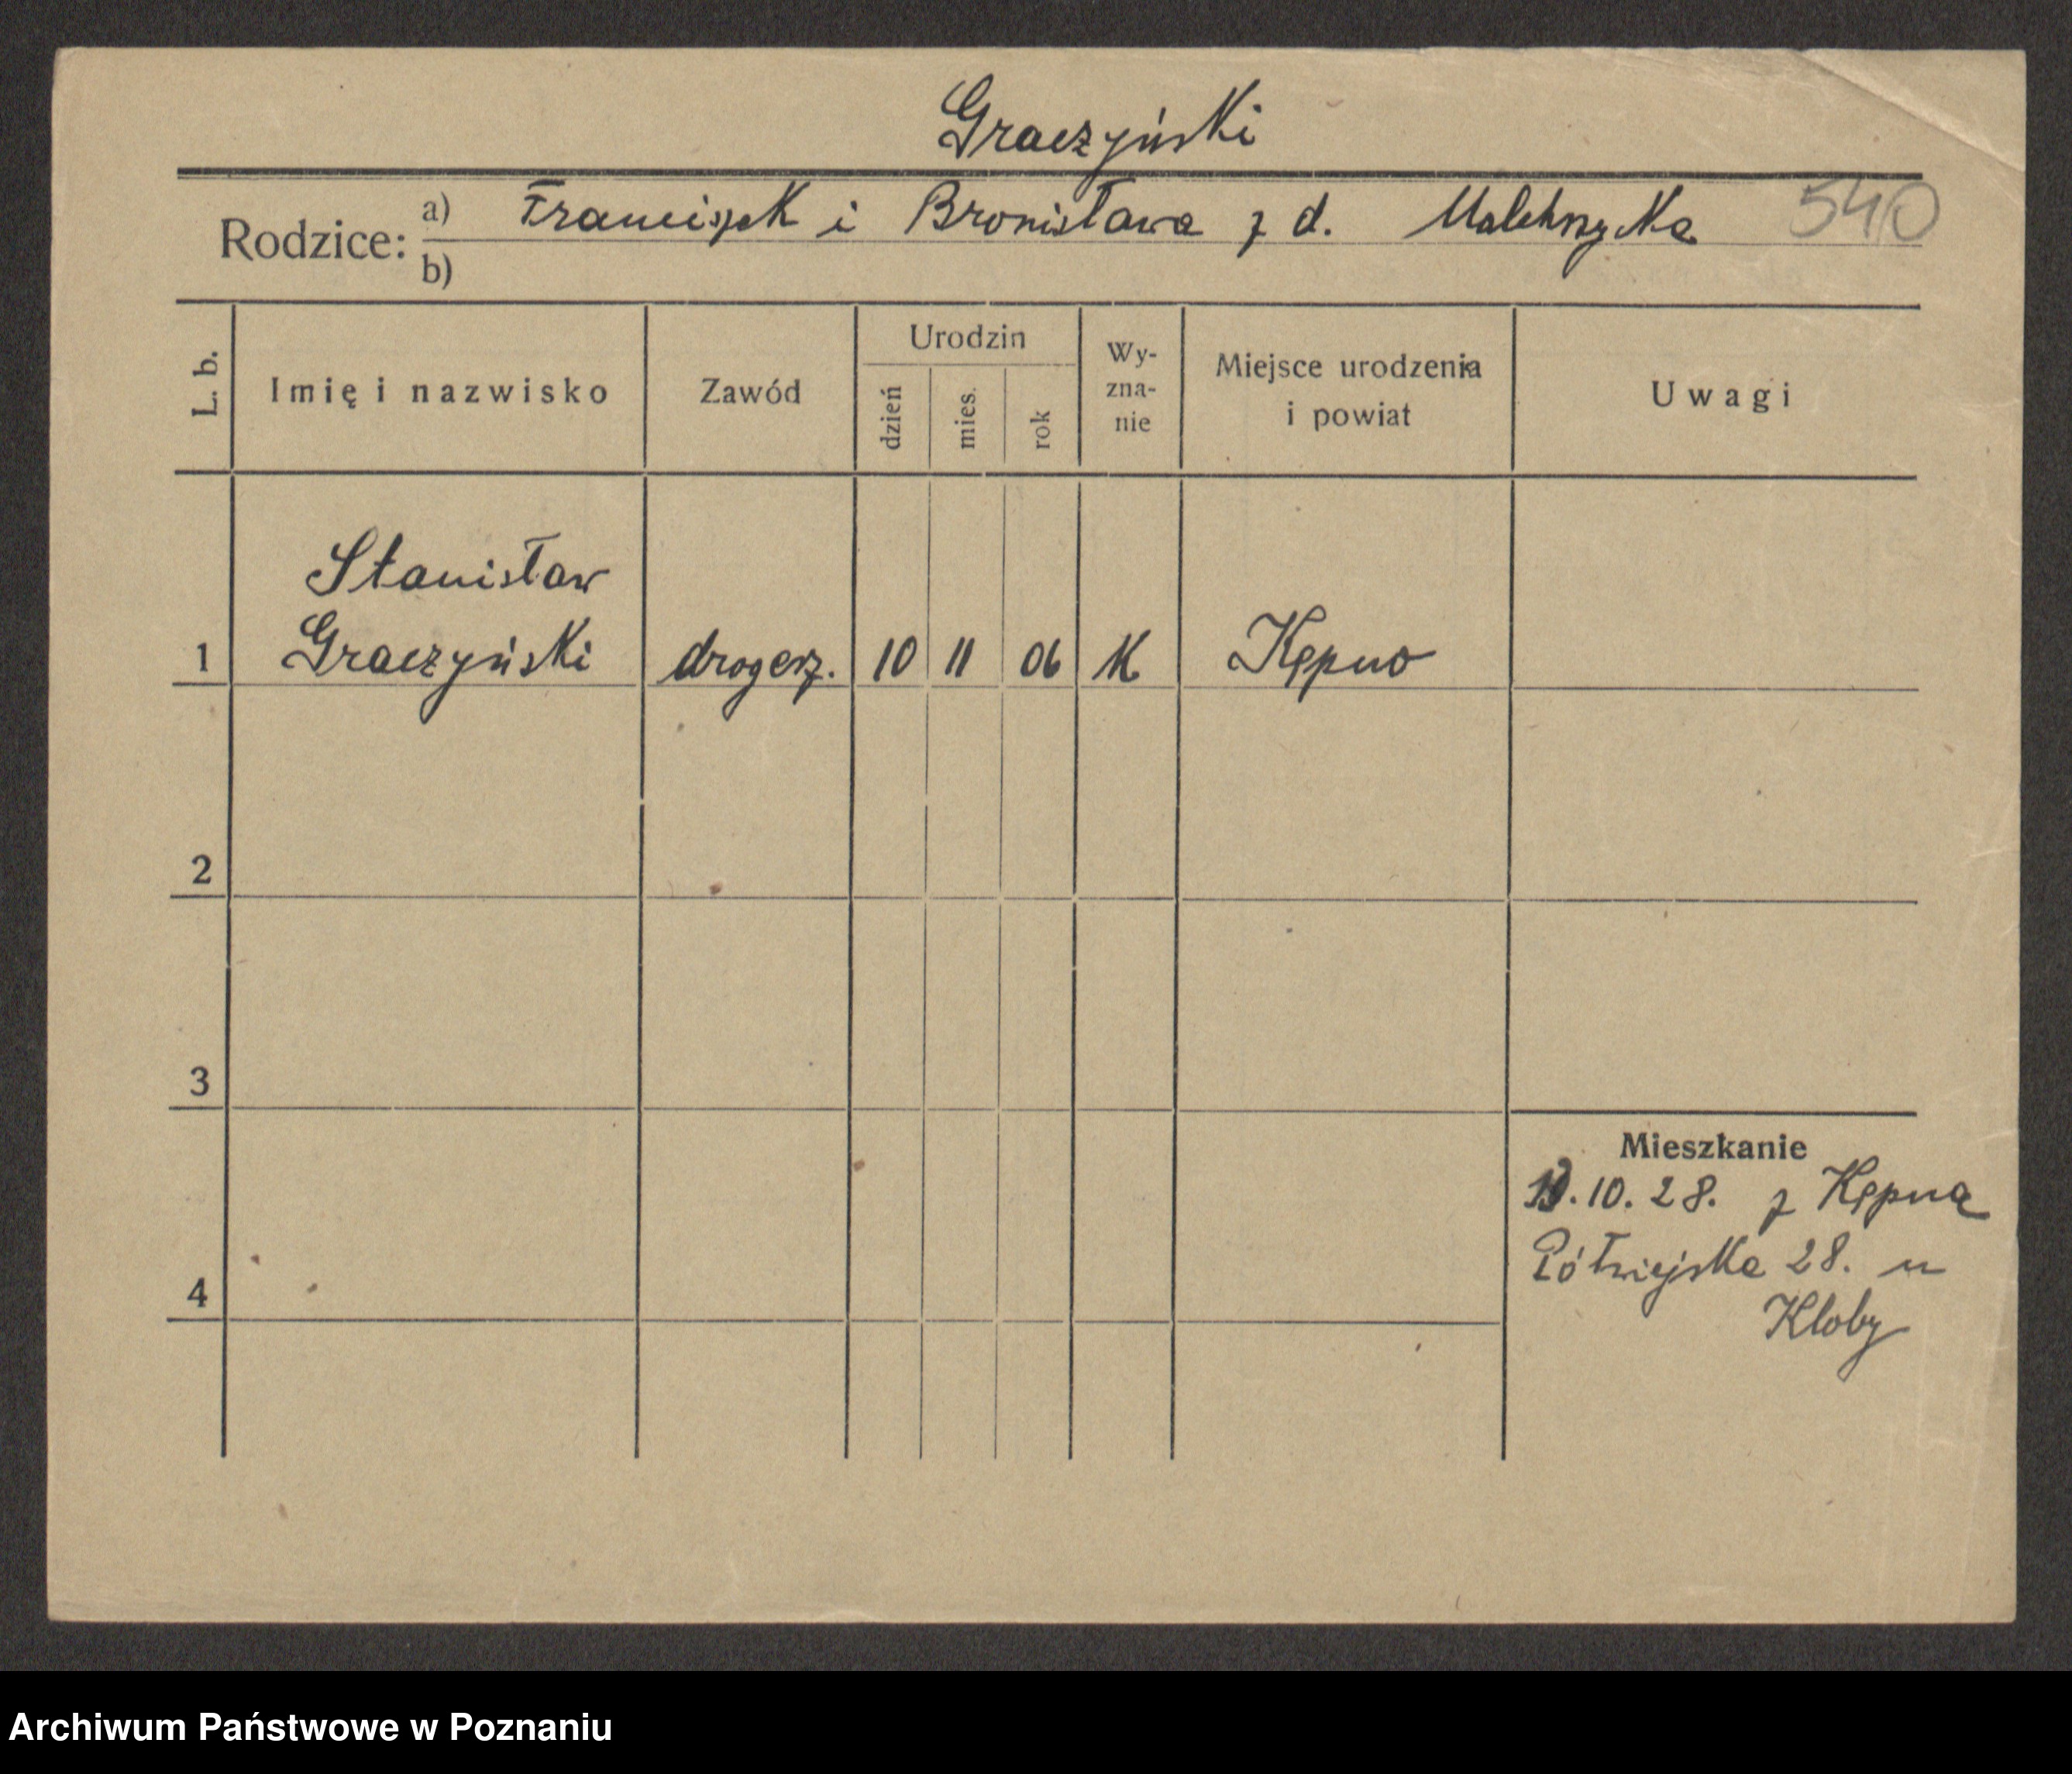 Graczyński
Rodzice: a) Franciszek i Bronisława z d. 540
b)
L. b. Imię i nazwisko Zawód Urodzin dzień mies. rok Wy-zna-nie Miejsce urodzenia i powiat Uwagi
Stanisław
1 Graczyński drogerz. 10 11 06 K Kępno
2
3
Mieszkanie
10. 28. z Kępna
Półwiejska 28. u
4
Kloby
Archiwum Państwowe w Poznaniu